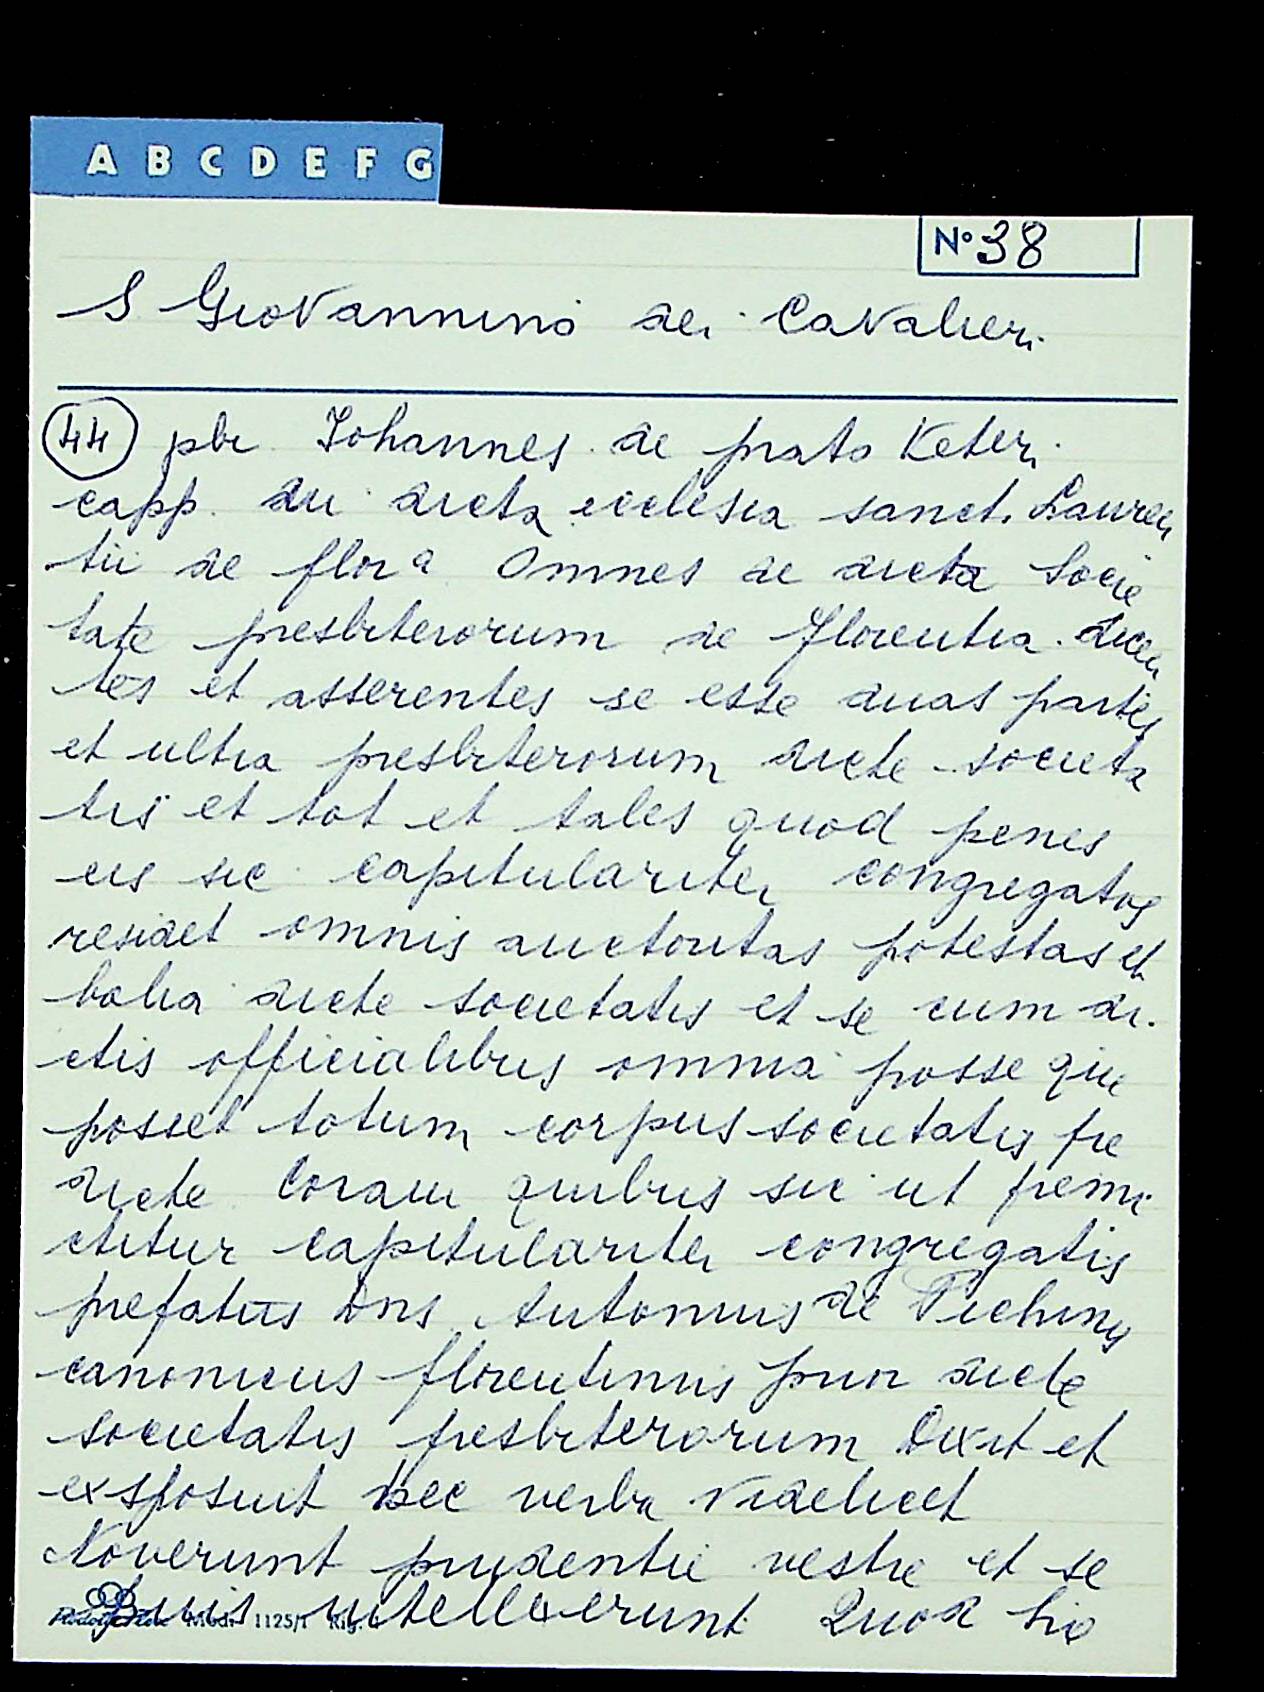 A B C D E F G
N° 38
S Giovannino dei Cavalieri
44 pbr Johannes de prato Keteri
capp. in dicta ecclesia sancti Lauren
tii de flora Omnes de dicta Socie
tate presbiterorum de Florentia. dicen
tes et asserentes se esse duas partes
et ultra presbiterorum dicte societa
tis et tot et tales quod penes
eis sic capitulariter congregatos
residet omnis auctoritas potestas et
balia dicte societatis et se cum di
ctis officialibus omnia posse que
posset totum corpus societatis pre
dicte Coram quibus sic ut premi
ctitur capitulariter congregatis
prefatus dns Antonius de Pichinis
canonicus florentinus prior dicte
societatis presbiterorum Dixit et
exsposuit hec verba videlicet
Noverunt prudentie vestre et se
intellexerunt Quod sic
Mod. 1125/1 Rig.